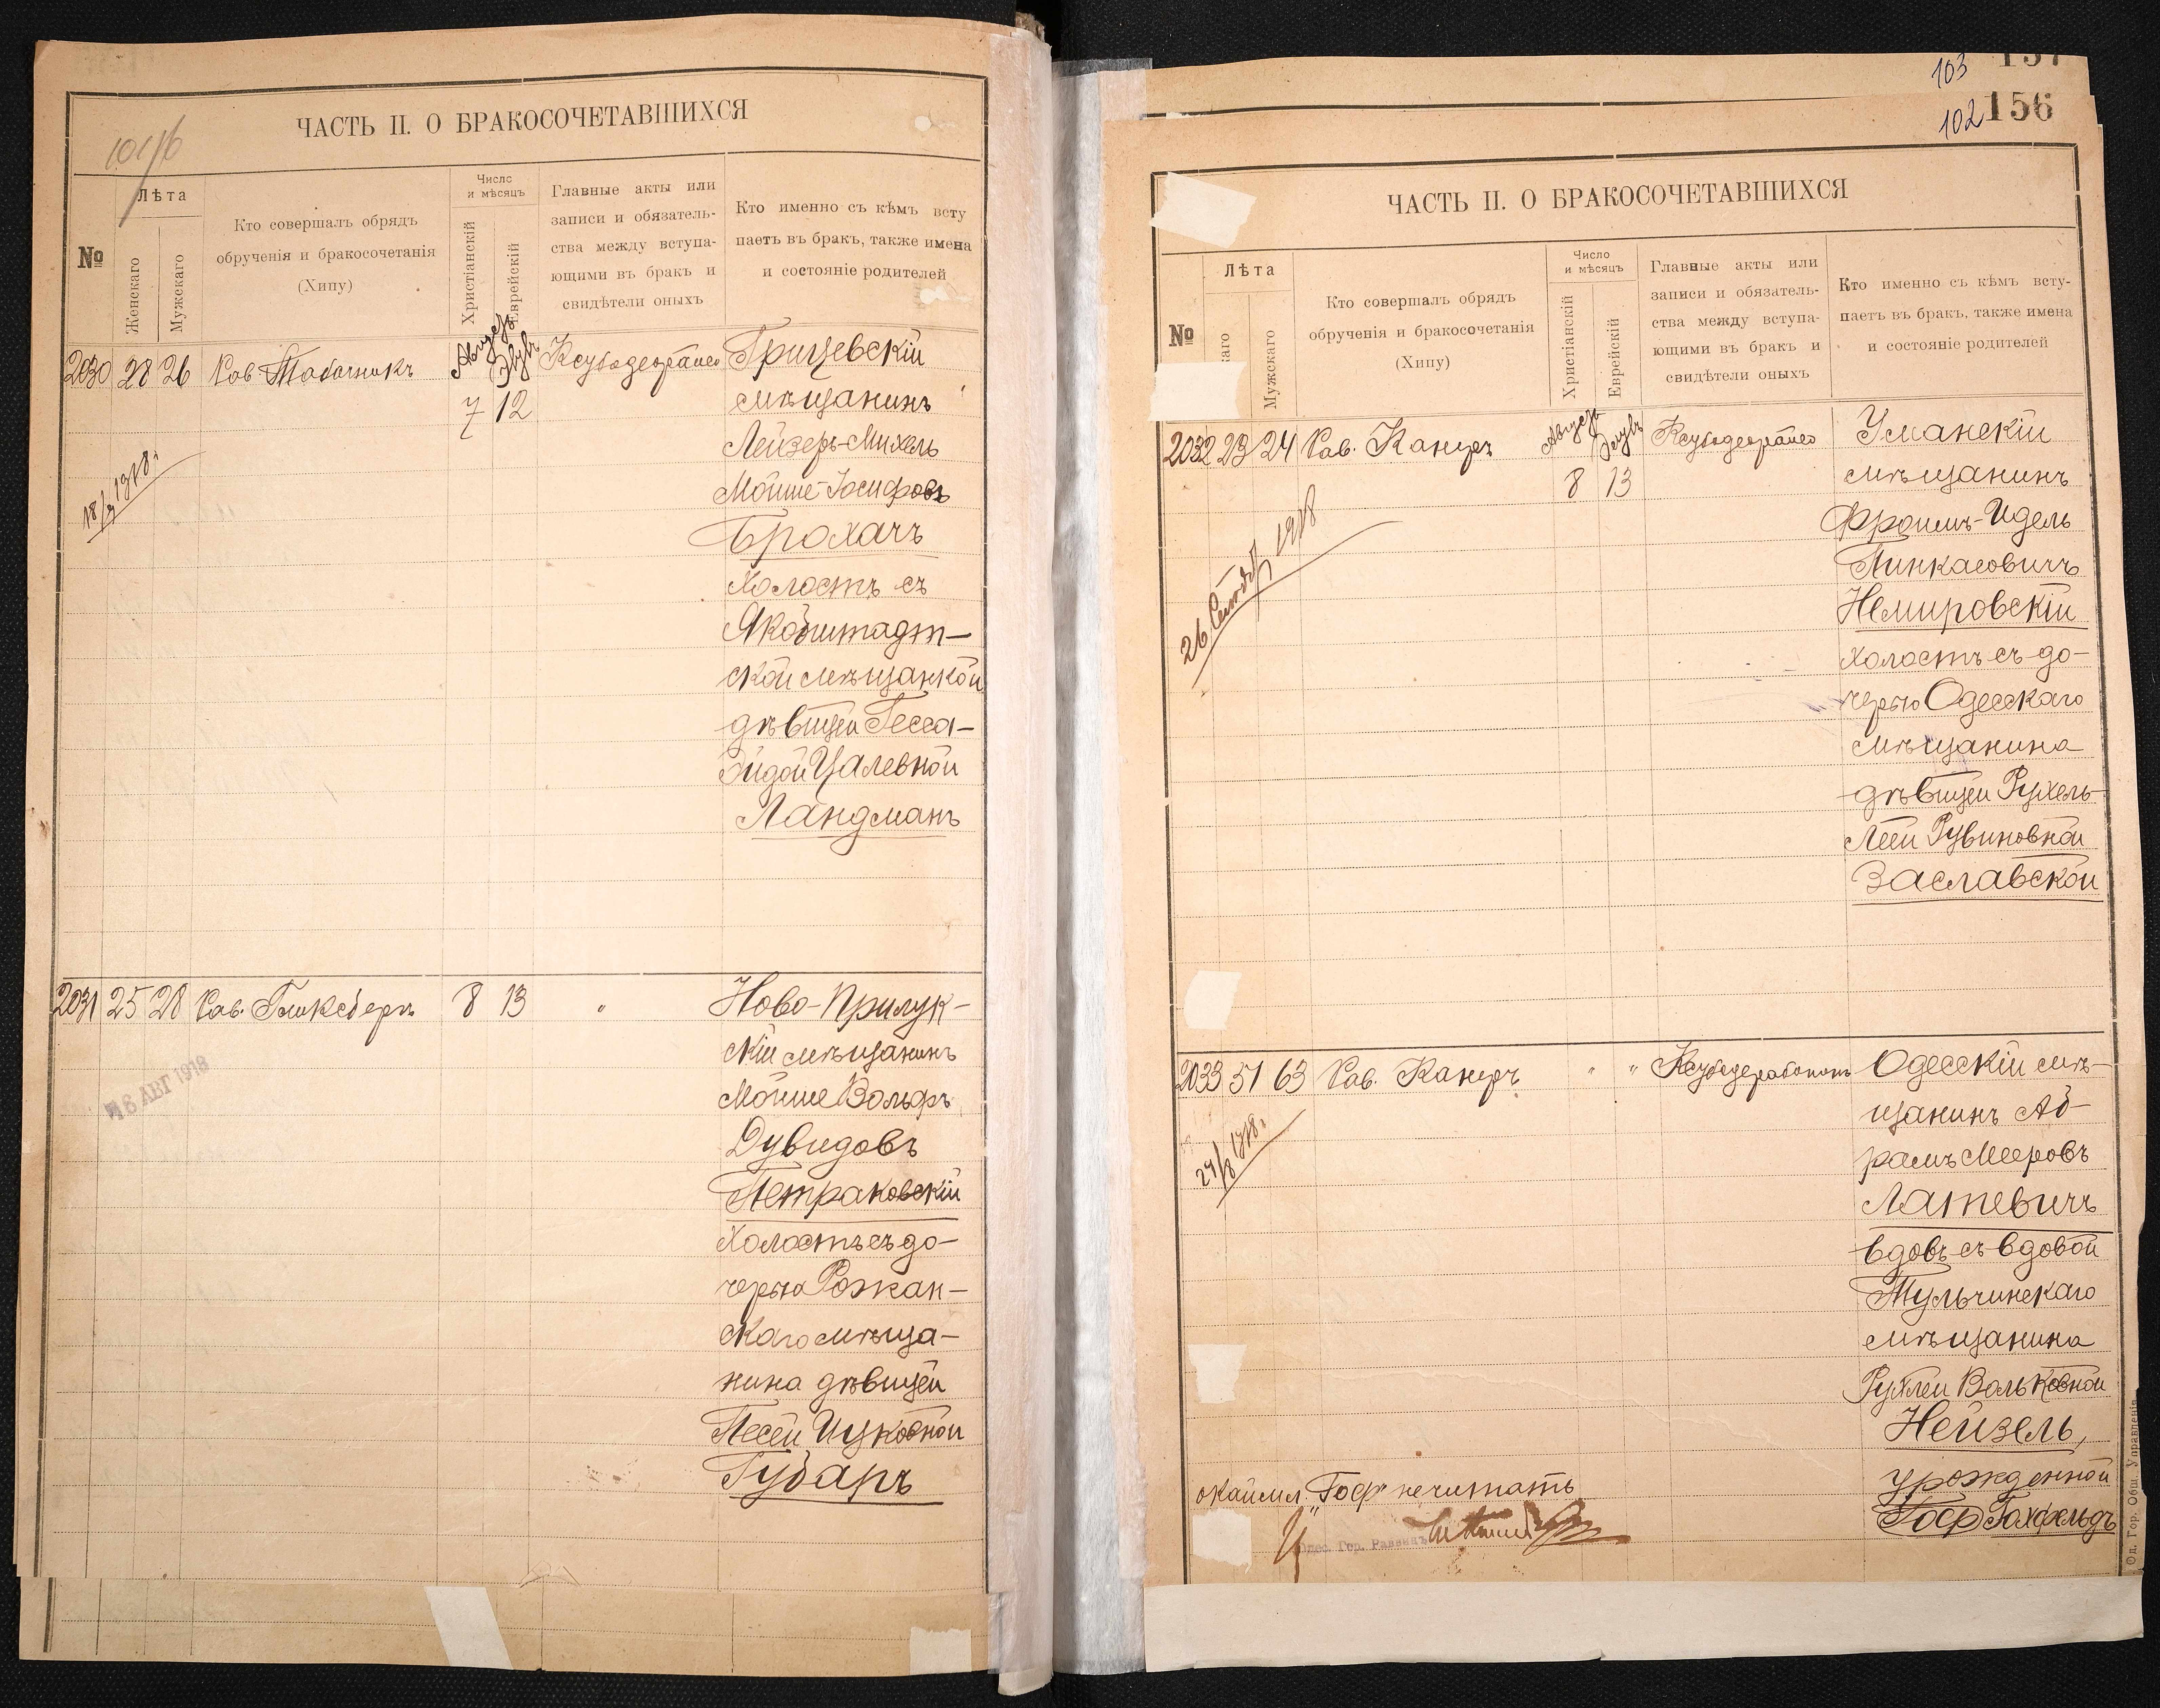 ЧАСТЬ II. О БРАКОСОЧЕТАВШИХСЯ
101/б
№
Лѣта
Женскаго
Мужскаго
Кто совершалъ обрядъ
обрученія и бракосочетанія
(Хипу)
Число
и мѣсяцъ
Христіанскій
Еврейскій
Главные акты или
записи и обязатель-
ства между вступа-
ющими въ бракъ и
свидѣтели оныхъ
Кто именно съ кѣмъ всту
паетъ въ бракъ, также имена
и состояніе родителей
2030 28 26 Рав Табачникъ Августъ Элулъ 7 12
Грицевскій
мѣщанинъ
Лейзеръ-Михель
Мойше-Іосифовъ
Брохачъ
холостъ съ
Якобштадт-
ской мѣщанкой
дѣвицей Гесса-
Эйдой Цалевной
Ландманъ
2031 25 28 Рав. Гликсбергъ 8 13 "
Ново-Прилук-
скій мѣщанинъ
Мойше Вольфъ
Дувидовъ
Петраковскій
холостъ съ до-
черью Рожан-
скаго мѣща-
нина дѣвицей
Песей Ицковной
Губаръ
8 АВГ 1918
103
157
102
156
ЧАСТЬ II. О БРАКОСОЧЕТАВШИХСЯ
№
Лѣта
каго
Мужскаго
Кто совершалъ обрядъ
обрученія и бракосочетанія
(Хипу)
Число
и мѣсяцъ
Христіанскій
Еврейскій
Главные акты или
записи и обязатель-
ства между вступа-
ющими въ бракъ и
свидѣтели оныхъ
Кто именно съ кѣмъ всту-
паетъ въ бракъ, также имена
и состояніе родителей
2032 23 24 Рав. Канеръ Августъ Элулъ 8 13
Уманскій
мѣщанинъ
Фроимъ-Идель
Пинкасовичъ
Немировскій
холостъ съ до-
черью Одесскаго
мѣщанина
дѣвицей Рухель-
Леей Рувиновной
Заславской
26 1918
2033 51 63 Рав. Канеръ " "
Одесскій мѣ-
щанинъ Аб-
рамъ Мееровъ
Латевичъ
вдовъ съ вдовой
Тульчинскаго
мѣщанина
Рухлей Вольковной
Нейзель,
урожденной
Гоф Гохфельдъ
окаймл. "Гоф" не читать
Одес. Гор. Раввинъ
Од. Гор. Общ. Управленія